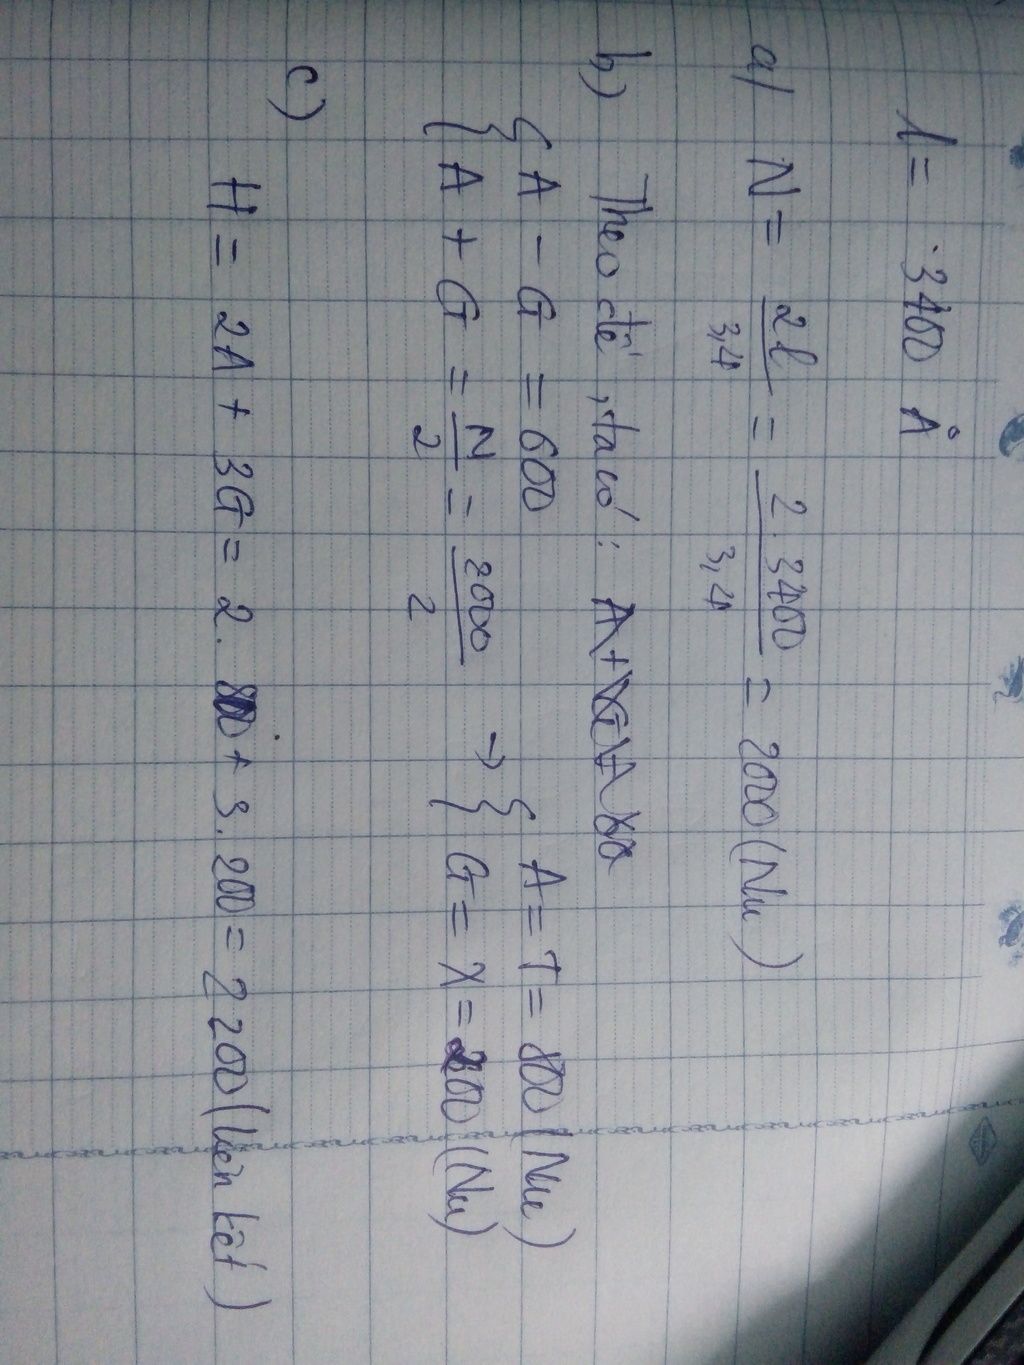 l = 3400 Å
a) N = 2l/3,4 = 2.3400/3,4 = 2000 (Nu)
b) Theo đề, ta có:
{ A - G = 600
{ A + G = N/2 = 2000/2 → { A = T = 800 (Nu)
{ G = X = 200 (Nu)
c)
H = 2A + 3G = 2.800 + 3.200 = 2200 (liên kết)